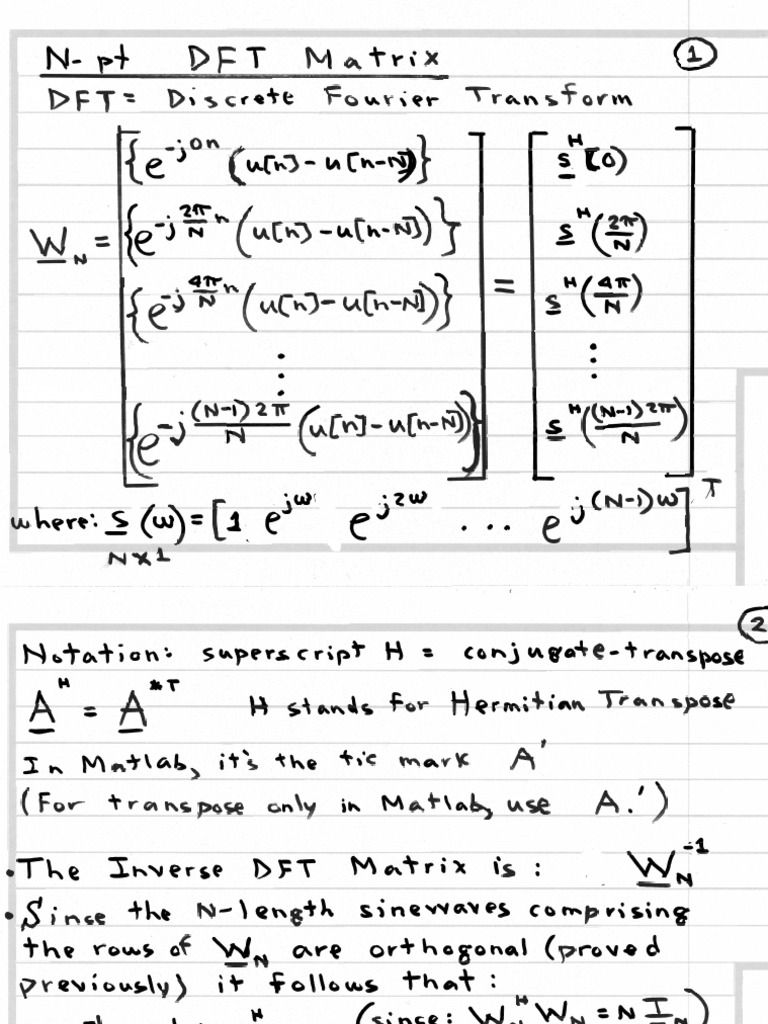 N-pt DFT Matrix 1
DFT = Discrete Fourier Transform
W_N = [ {e^{-j0n} (u[n]-u[n-N])} ] = [ s^H(0) ]
{e^{-j 2π/N n} (u[n]-u[n-N])} s^H(2π/N)
{e^{-j 4π/N n} (u[n]-u[n-N])} s^H(4π/N)
⋮ ⋮
{e^{-j (N-1)2π/N} (u[n]-u[n-N])} s^H((N-1)2π/N)
where: s(ω) = [1 e^{jω} e^{j2ω} ... e^{j(N-1)ω}]^T
N×1
2
Notation: superscript H = conjugate-transpose
A^H = A^{*T} H stands for Hermitian Transpose
In Matlab, it's the tic mark A'
(For transpose only in Matlab, use A.')
• The Inverse DFT Matrix is: W_N^{-1}
• Since the N-length sinewaves comprising
the rows of W_N are orthogonal (proved
previously) it follows that:
H (since: W_N^H W_N = N I_N)